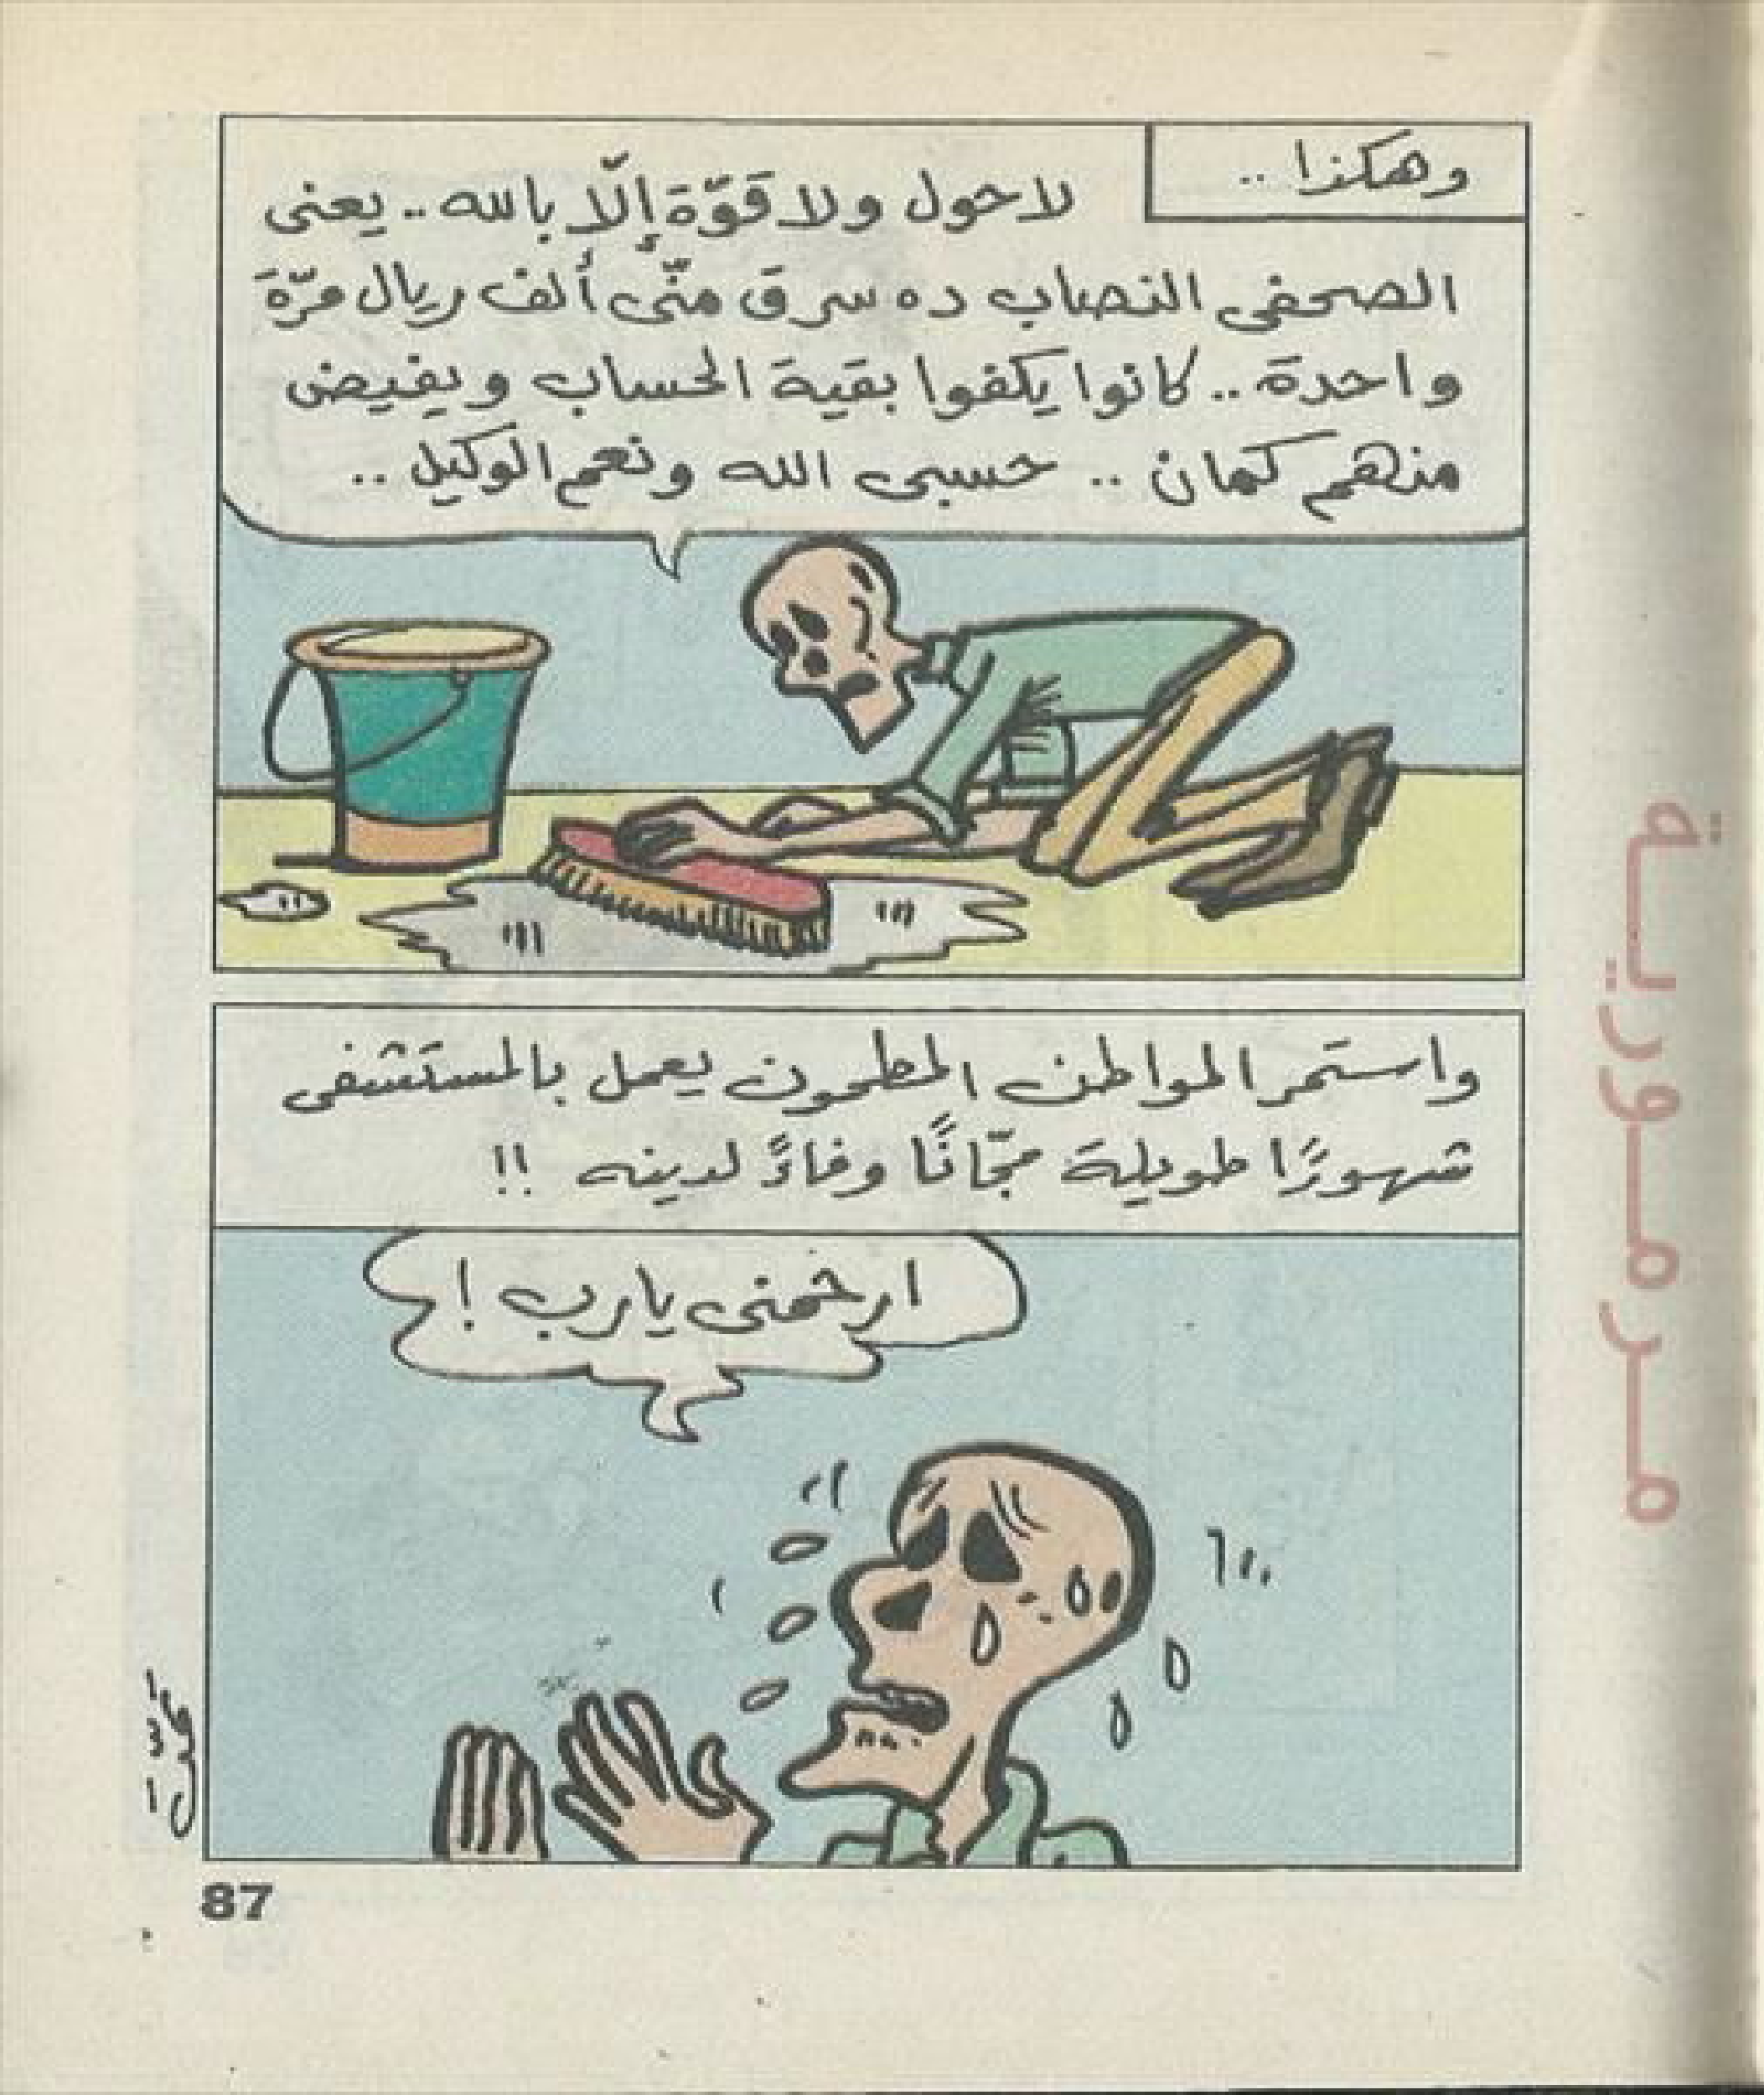 وهكذا ..
لا حول ولا قوّة إلّا بالله .. يعنى
الصحفى النصاب ده سرق منّى ألف ريال مرّة
واحدة .. كانوا يكفوا بقية الحساب ويفيض
منهم كمان .. حسبى الله ونعم الوكيل ..
واستمر المواطن المطحون يعمل بالمستشفى
شهورًا طويلة مجّانًا وفاءً لدينه !!
ارحمنى يارب !
87
مرمورية